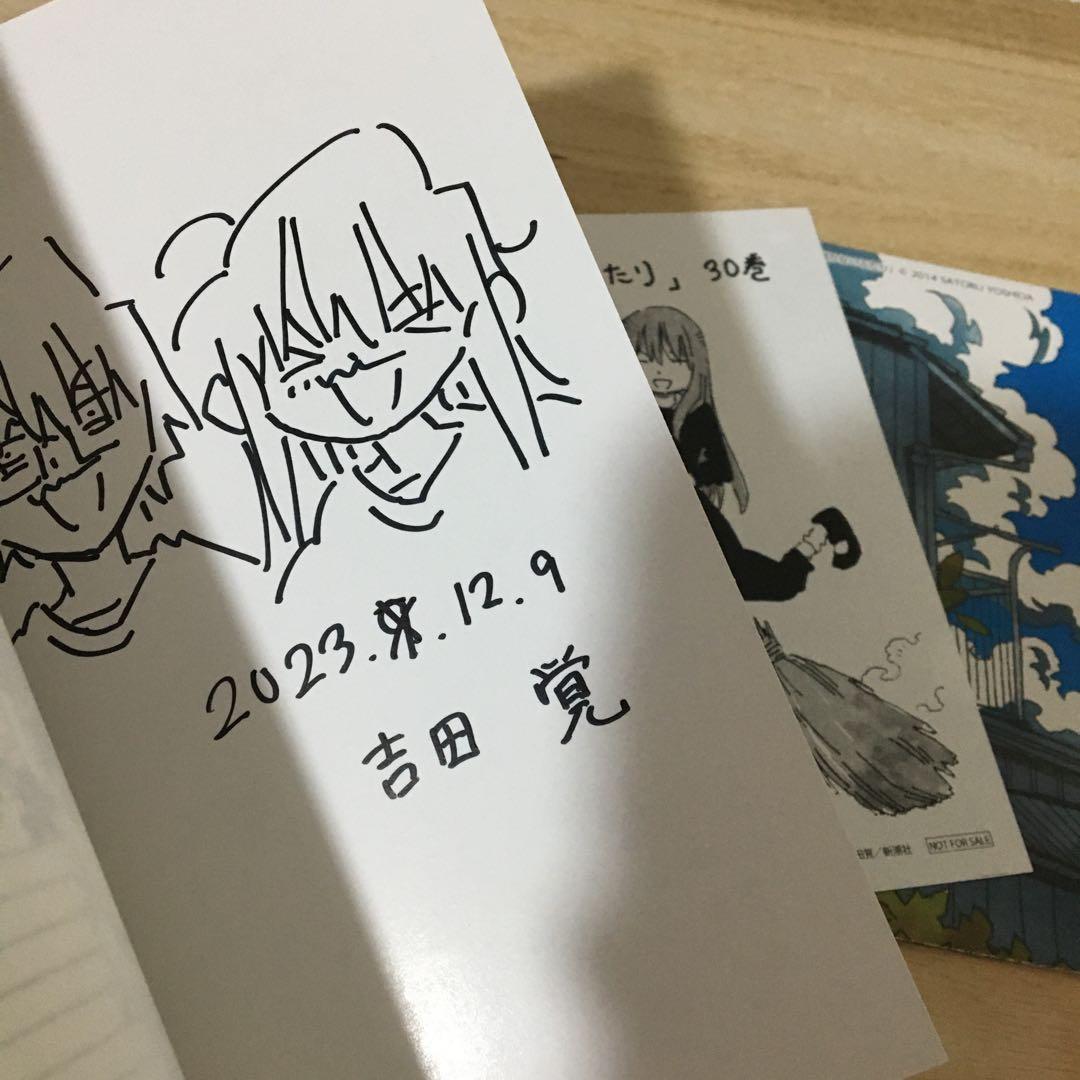 2023.12.9
吉田 覚
たり」 30巻
© 2014 SATORU YOSHIDA
田覚／新潮社
NOT FOR SALE